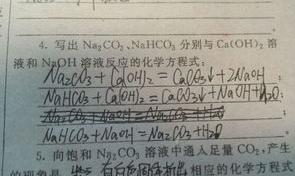 4. 写出 Na₂CO₃、NaHCO₃ 分别与 Ca(OH)₂ 溶
液和 NaOH 溶液反应的化学方程式:
Na₂CO₃ + Ca(OH)₂ = CaCO₃↓ + 2NaOH ;
NaHCO₃ + Ca(OH)₂ = CaCO₃↓ + NaOH + H₂O ;
NaHCO₃ + NaOH = Na₂CO₃ + H₂O
5. 向饱和 Na₂CO₃ 溶液中通入足量 CO₂,产生
的现象是 有白色固体析出 相应的化学方程式